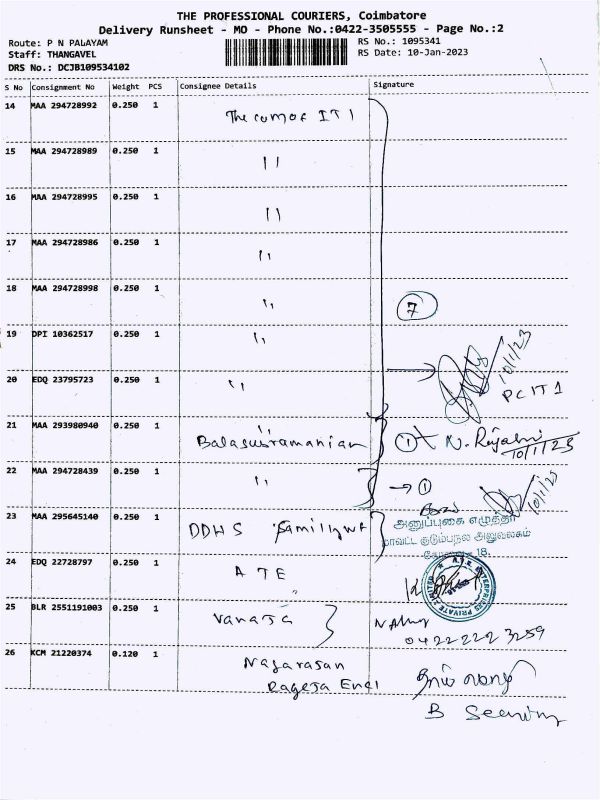 THE PROFESSIONAL COURIERS, Coimbatore
Delivery Runsheet - MO - Phone No.:0422-3505555 - Page No.:2
Route: P N PALAYAM
Staff: THANGAVEL
DRS No.: DCJB109534102
RS No.: 1095341
RS Date: 10-Jan-2023
S No Consignment No Weight PCS Consignee Details Signature
14 MAA 294728992 0.250 1 The com of IT 1
15 MAA 294728989 0.250 1 "
16 MAA 294728995 0.250 1 "
17 MAA 294728986 0.250 1 "
18 MAA 294728998 0.250 1 "
7
19 DPI 10362517 0.250 1 "
10/1/23
20 EDQ 23795723 0.250 1 "
PCIT 1
21 MAA 293980940 0.250 1 "
Balasubramanian 1 N. 10/1/23
22 MAA 294728439 0.250 1 "
1
10/1/23
23 MAA 295645140 0.250 1 DDHS
அனுப்புகை எழுத்தர்
மாவட்ட குடும்பநல அலுவலகம்
18.
24 EDQ 22728797 0.250 1 ATE
ENTERPRISES PRIVATE LIMITED
25 BLR 2551191003 0.250 1 Vanaja
0422 222 3259
26 KCM 21220374 0.120 1 Nagarasan
B